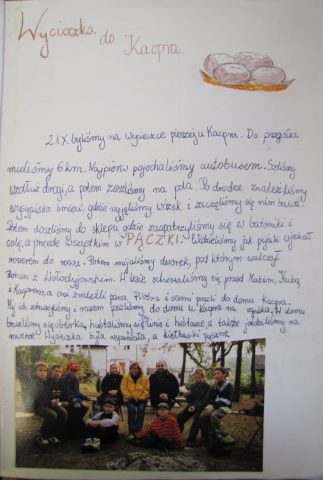 Wycieczka
do Kacpra
2 IX byliśmy na wycieczce pieszej u Kacpra. Do przejścia
mieliśmy 6 km. Najpierw pojechaliśmy autobusem. Szliśmy
wzdłuż drogi, a potem zeszliśmy na pola. Po drodze znaleźliśmy
wysypisko śmieci, gdzie wzięliśmy wózek i zaczęliśmy się nim bawić.
Potem doszliśmy do sklepu gdzie zaopatrzyliśmy się w batoniki i
colę, a przede wszystkim w PĄCZKI. Widzieliśmy jak pijak wjechał
rowerem do rowu. Potem mijaliśmy dworek, pod którym walczył
Bohun z Wołodyjowskim. W lesie schowaliśmy się przed Kubą
i Kacprem, a oni znaleźli pana Piotra i sami poszli do domu Kacpra.
My ich i razem poszliśmy do domu u Kacpra na ognisko. W domu
bawiliśmy się huśtaliśmy się na linie i huśtawce, a także jeździliśmy na
rowerze. Wycieczka była wspaniała, a kiełbaski pyszne.